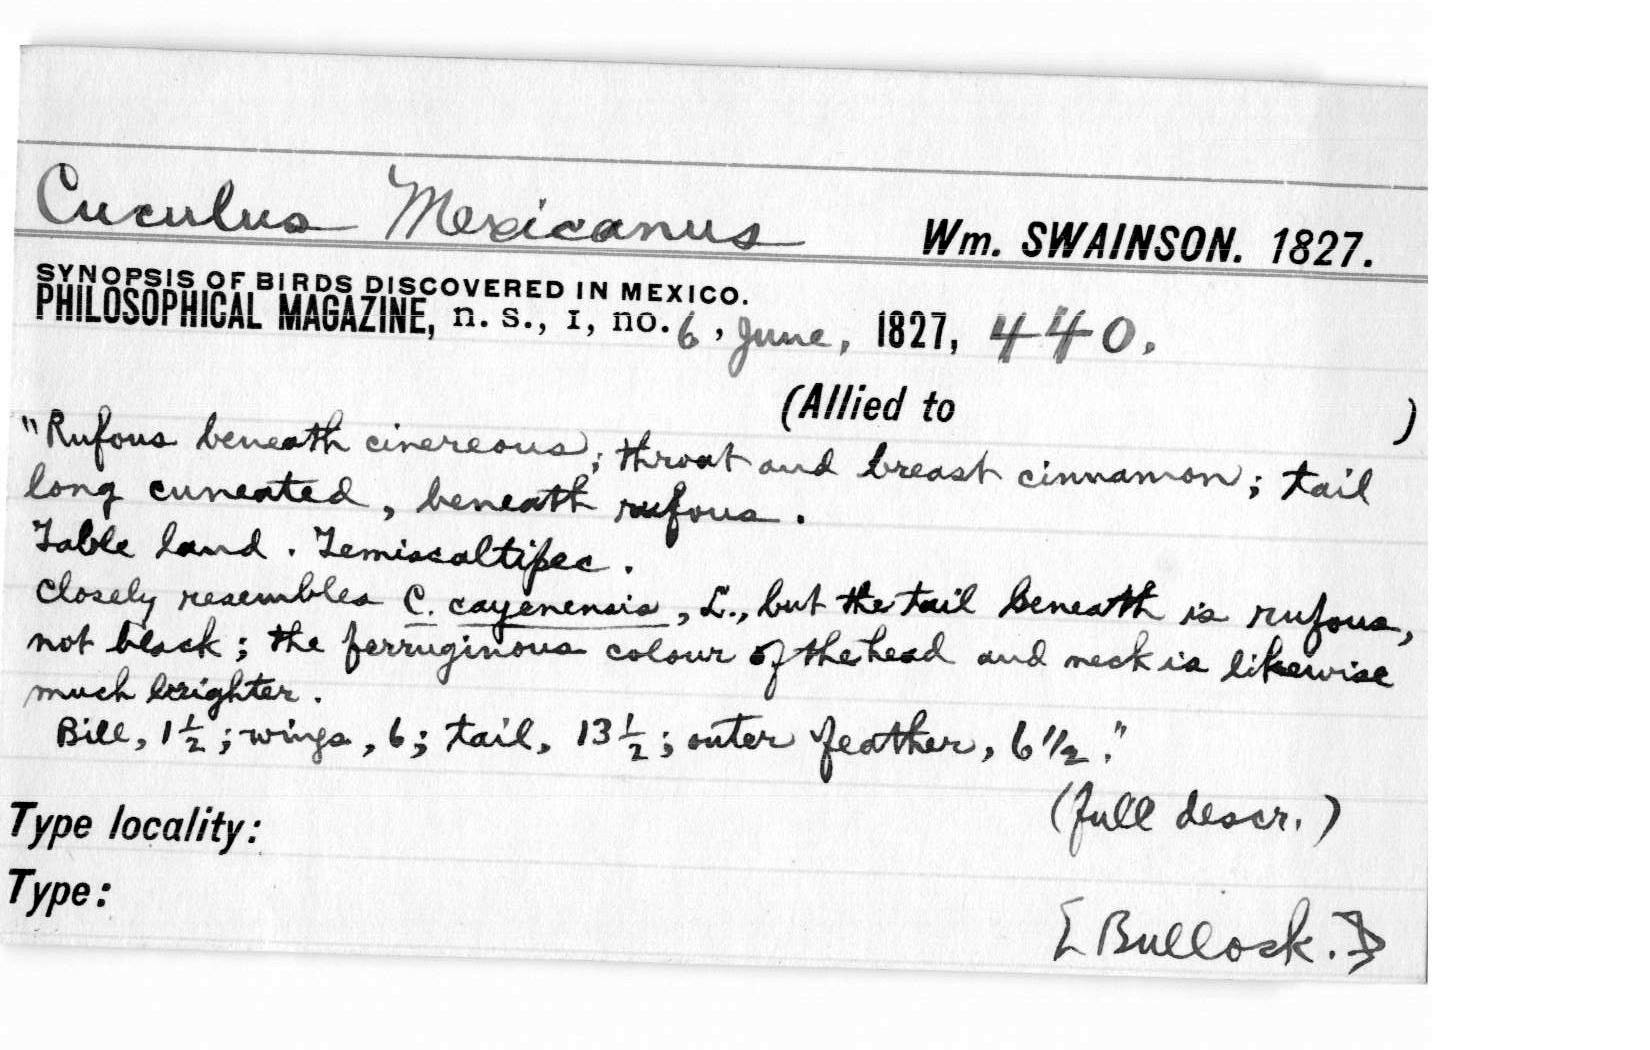 Cuculus Mexicanus Wm. SWAINSON. 1827.
SYNOPSIS OF BIRDS DISCOVERED IN MEXICO.
PHILOSOPHICAL MAGAZINE, n. s., I, no. 6, June, 1827, 440.
(Allied to )
"Rufous beneath cinereous; throat and breast cinnamon; tail
long cuneated, beneath rufous.
Table land. Temiscaltipec.
Closely resembles C. cayenensis, L., but the tail beneath is rufous,
not black; the ferruginous colour of the head and neck is likewise
much brighter.
Bill, 1 1/2; wings, 6; tail, 13 1/2; outer feather, 6 1/2."
(full descr.)
Type locality:
Type:
[Bullock.]